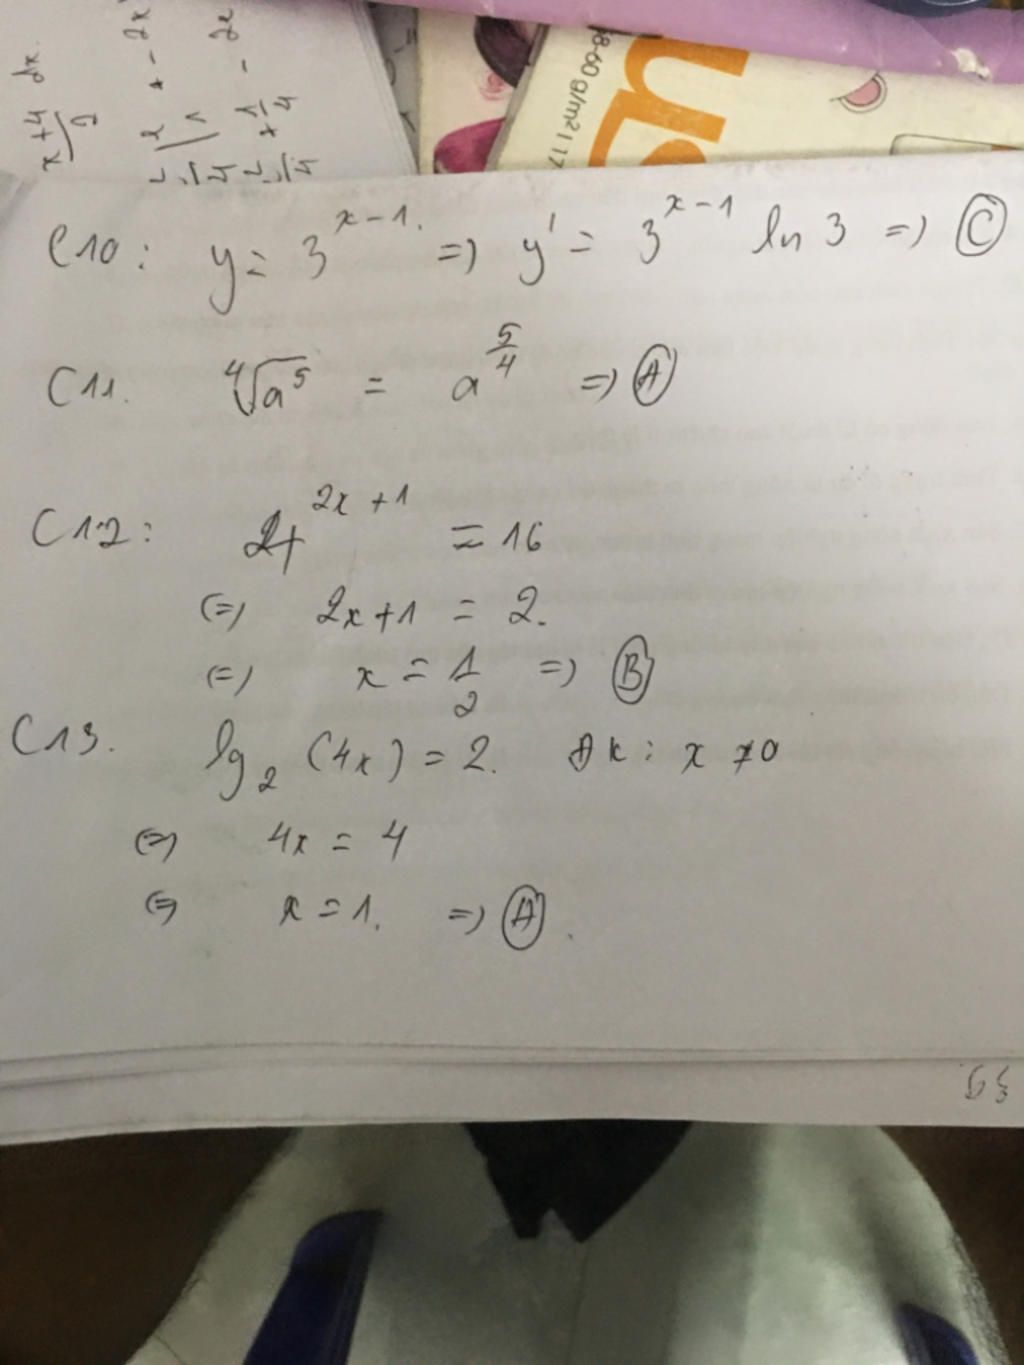 C10: y = 3^{x-1}. => y' = 3^{x-1} ln 3 => Ⓒ
C11. ⁴√a⁵ = a^{5/4} => Ⓐ
C12: 4^{2x+1} = 16
<=> 2x+1 = 2.
<=> x = 1/2 => Ⓑ
C13. lg₂ (4x) = 2. ĐK: x ≠ 0
<=> 4x = 4
<=> x = 1. => Ⓐ.